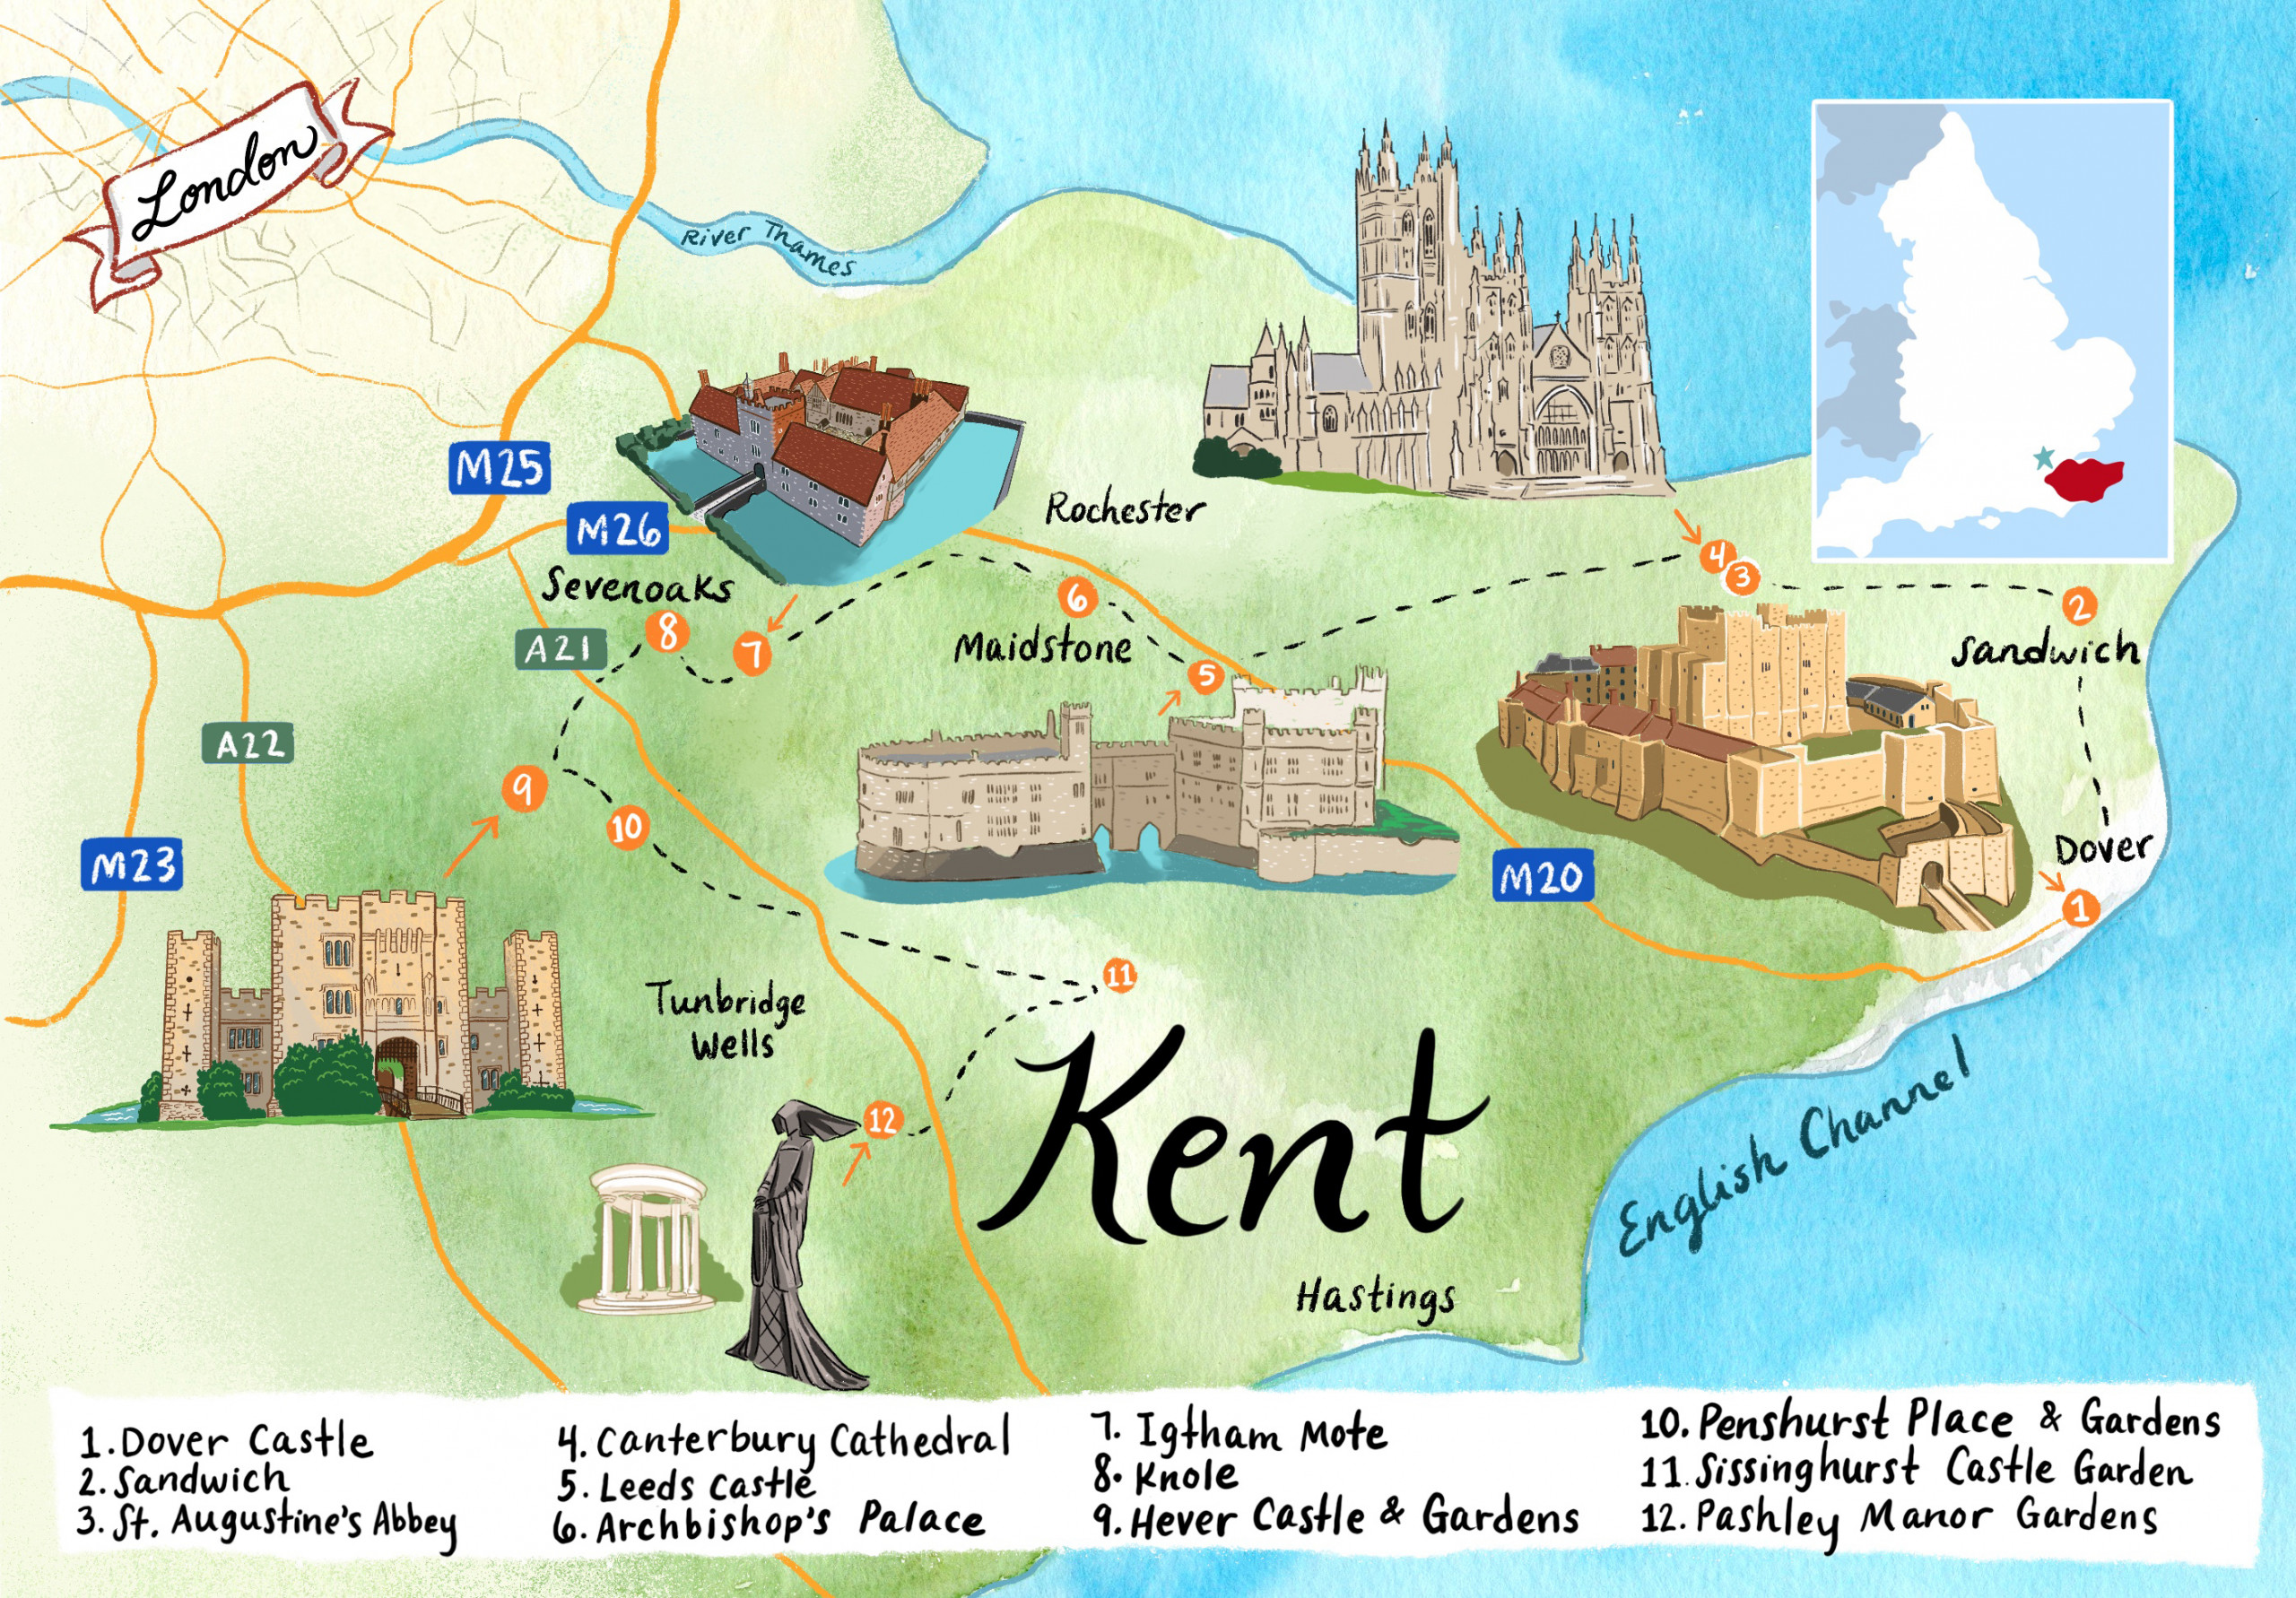 London
River Thames
M25
Rochester
M26
4
Sevenoaks
3
6
2
8
A21
7
Maidstone
Sandwich
5
A22
9
10
Dover
M23
M20
1
11
Tunbridge
Wells
Kent
12
English Channel
Hastings
1. Dover Castle
2. Sandwich
3. St. Augustine's Abbey
4. Canterbury Cathedral
5. Leeds Castle
6. Archbishop's Palace
7. Igtham Mote
8. Knole
9. Hever Castle & Gardens
10. Penshurst Place & Gardens
11. Sissinghurst Castle Garden
12. Pashley Manor Gardens